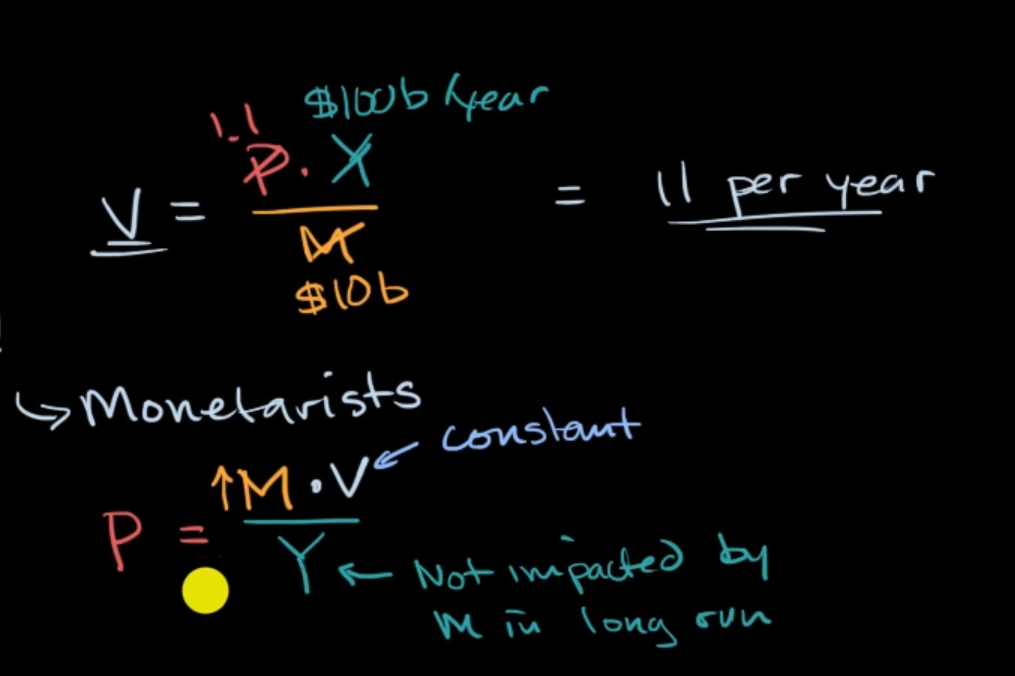 $100b/year
1.1
V = P · Y / M = 11 per year
$10b
↳ Monetarists
constant
P = ↑M · V / Y ← Not impacted by
M in long run